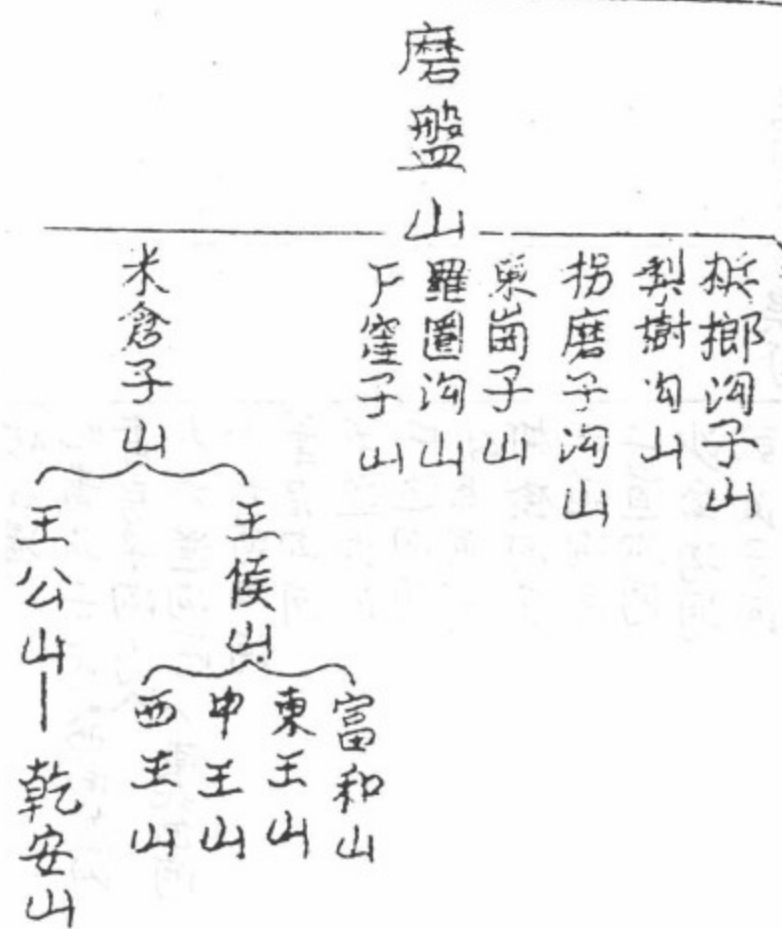 磨盤山
梹榔溝子山
梨樹溝山
拐磨子溝山
東崗子山
羅圈溝山
下窪子山
米倉子山
王侯山
王公山
富和山
東王山
中王山
西王山
乾安山